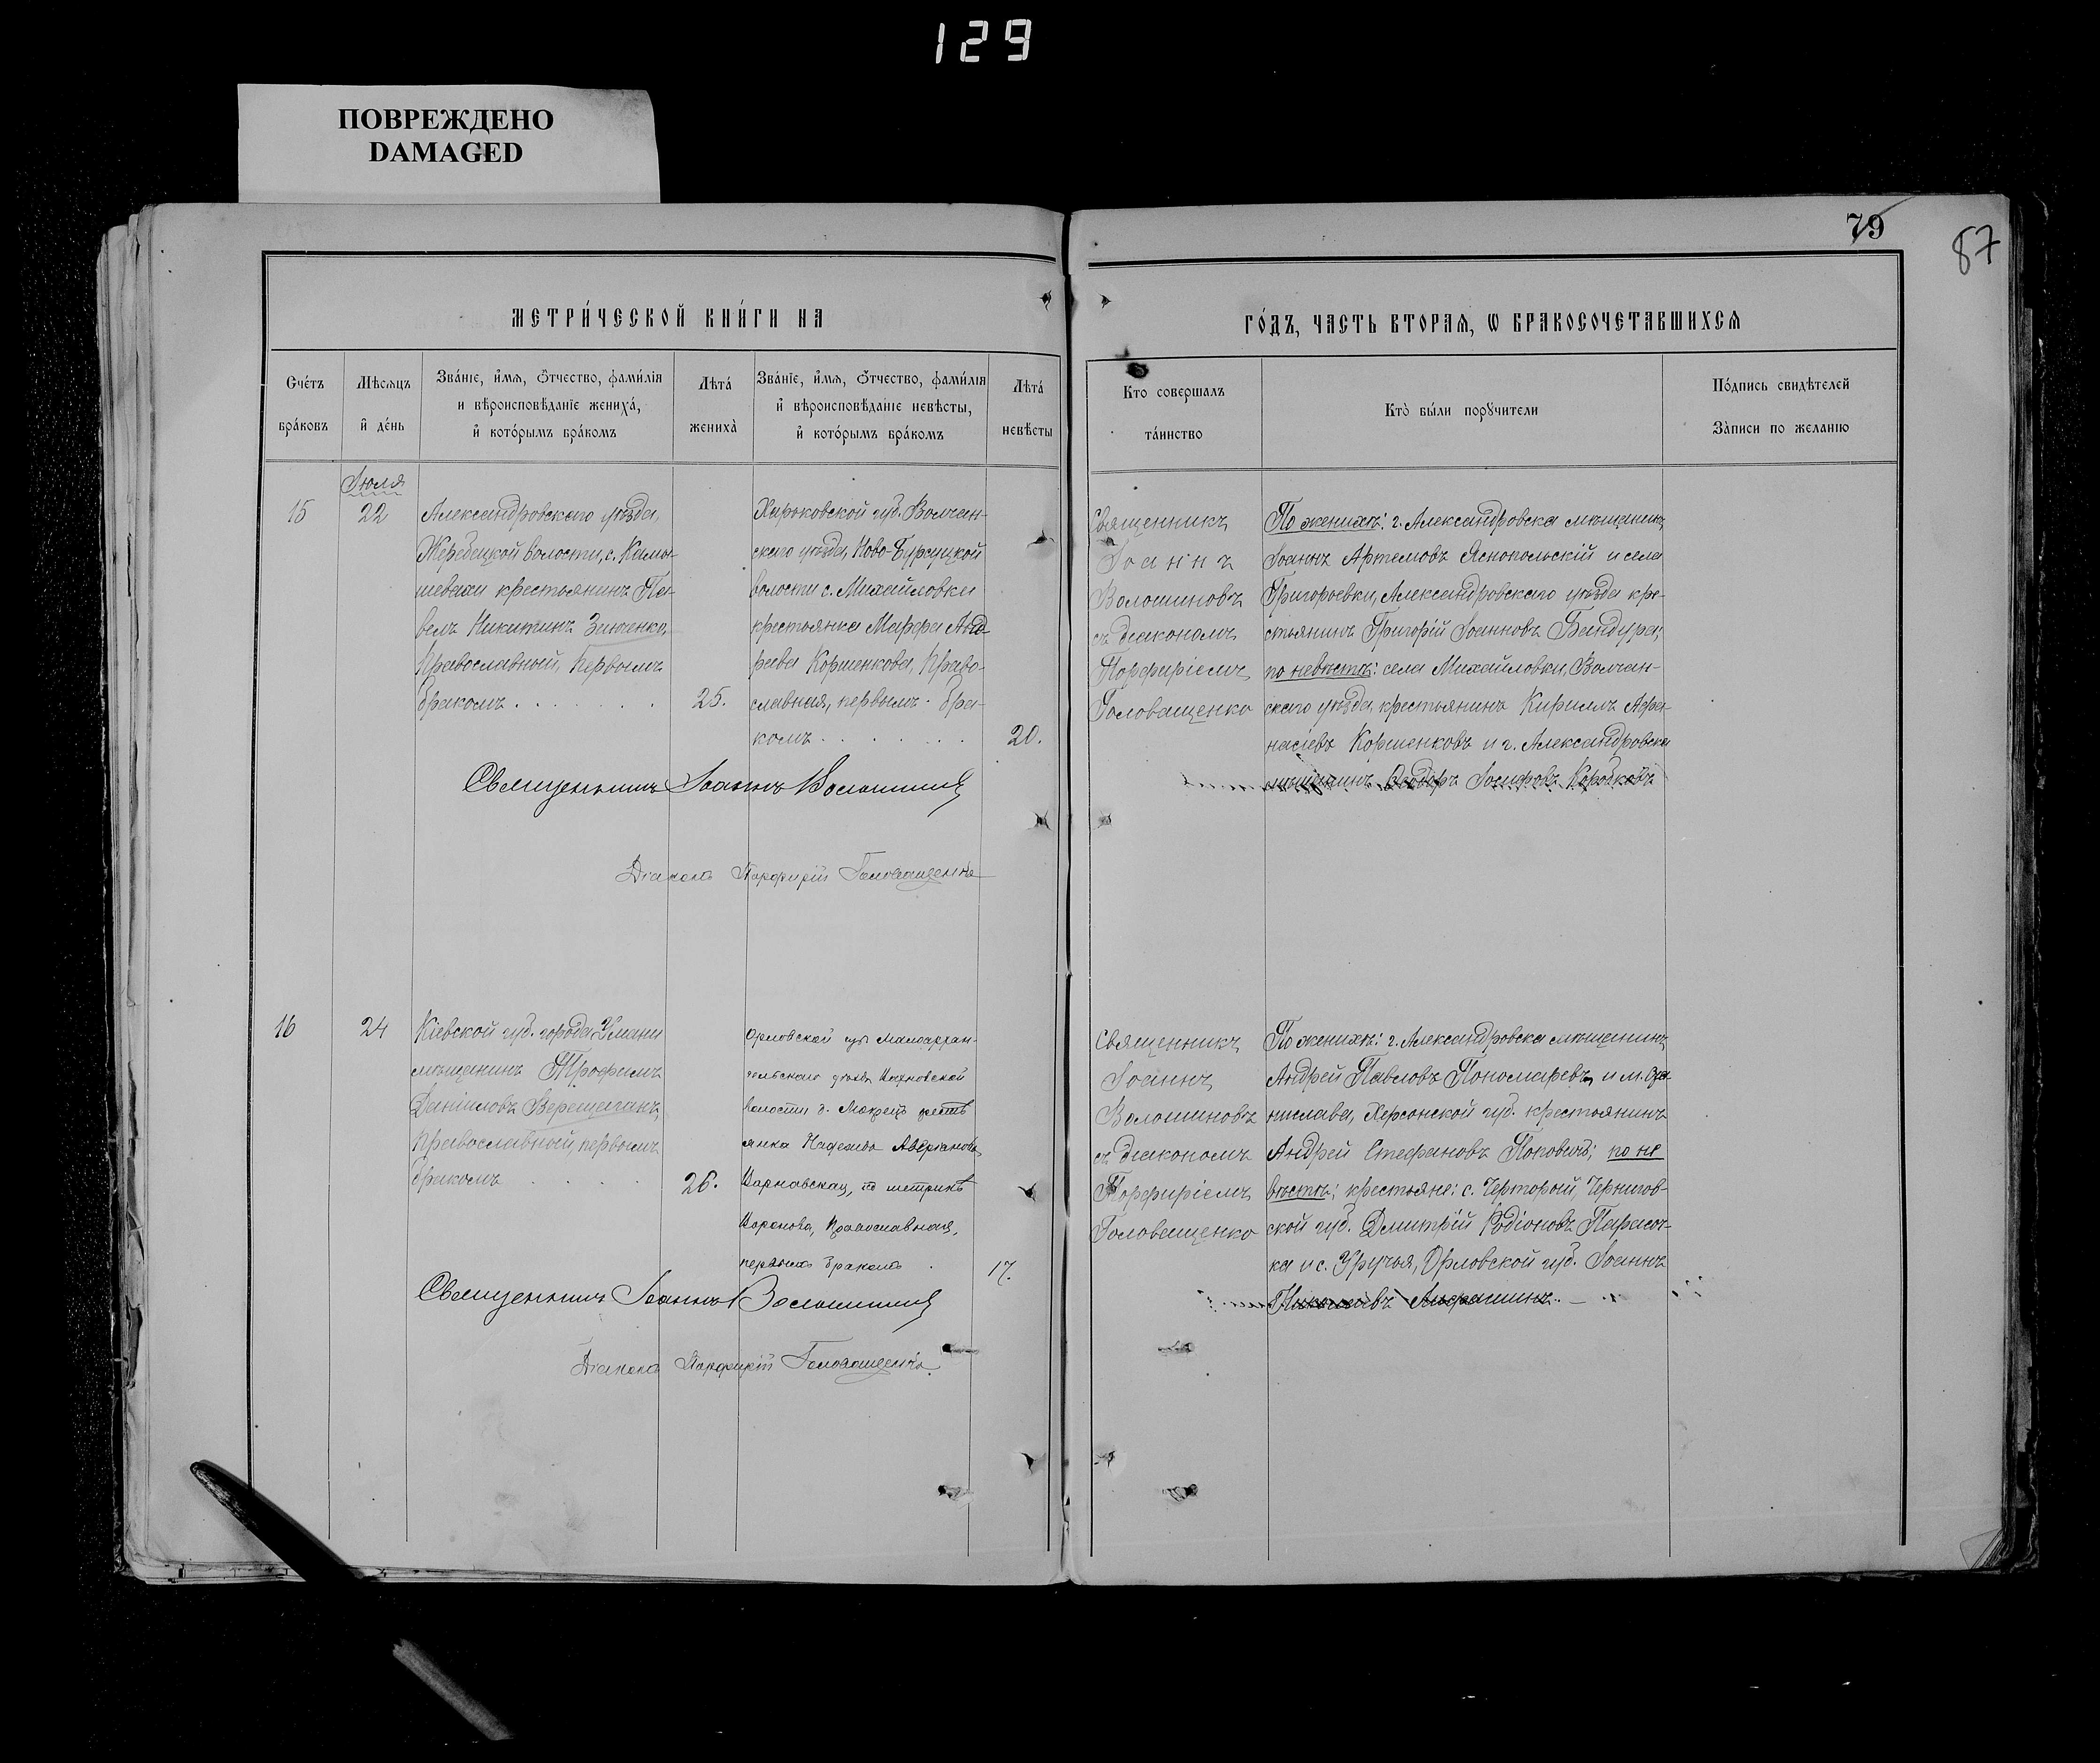 129
ПОВРЕЖДЕНО
DAMAGED
79
87
МЕТРИ́ЧЕСКОЙ КНИ́ГИ НА
ГО́ДЪ, ЧАСТЬ ВТОРАѦ, Ѡ БРАКОСОЧЕТАВШИХСѦ
Счéтъ бра́ковъ
Мѣсѧцъ и҆ де́нь
Зва́нїе, и҆́мѧ, ѻ҆́тчество, фами́лїѧ
и вѣроисповѣ́данїе жениха́,
и҆ кото́рымъ бра́комъ
Лѣта́ жениха̀
Зва́нїе, и҆́мѧ, ѻ҆́тчество, фами́лїѧ
и҆ вѣроисповѣ́данїе невѣ́сты,
и҆ кото́рымъ бра́комъ
Лѣта́ невѣ́сты
Кто совершалъ та́инство
Кто̀ бы́ли порꙋчители
По́дпись свидѣ́телей
За̀писи по желанїю
Іюля
15
22
Александровскаго уѣзда,
Жеребецкой волости, с. Камы-
шевахи крестьянинъ Па-
велъ Никитинъ Зинченко,
Православный, первымъ
бракомъ . . . . . . .
25.
Харьковской губ. Волчан-
скаго уѣзда, Ново-Бурлуцкой
волости с. Михайловки
крестьянка Марфа Анд-
реева Коршенкова, Право-
славная, первымъ бра-
комъ . . . . . . .
20.
Священникъ
Іоаннъ
Волошиновъ
съ діакономъ
Порфиріемъ
Головащенко
По женихѣ: г. Александровска мѣщанинъ
Іоаннъ Артемовъ Яснопольскій и села
Григорьевки, Александровскаго уѣзда кре-
стьянинъ Григорій Іоанновъ Бандура;
по невѣстѣ: села Михайловки, Волчан-
скаго уѣзда, крестьянинъ Кириллъ Афа-
насіевъ Коршенковъ и г. Александровска
мѣщанинъ Ѳеодоръ Іосифовъ Коробковъ
Священникъ Іоаннъ Волошиновъ
Діаконъ Порфирій Головащенко
16
24
Кіевской губ. города Умани
мѣщанинъ Трофимъ
Даніиловъ Верещаганъ,
Православный, первымъ
бракомъ . . . .
26.
Орловской губ Малоархан-
гельскаго уѣзда
волости д. крестъ
янка Аверкіанова
Варнавская, по метрикѣ
Православная,
первымъ бракомъ .
17.
Священникъ
Іоаннъ
Волошиновъ
съ діакономъ
Порфиріемъ
Головащенко
По женихѣ: г. Александровска мѣщанинъ
Андрей Павловъ Пономаревъ, и м.
нислава, Херсонской губ. крестьянинъ
Андрей Стефановъ Поповичъ; по не
вѣстѣ: крестьяне: с. Чертории, Чернигов-
ской губ. Дмитрій Родіоновъ Парасоч-
ка и с. Уручья, Орловской губ. Іоаннъ
Николаевъ
Священникъ Іоаннъ Волошиновъ
Діаконъ Порфирій Головащенко